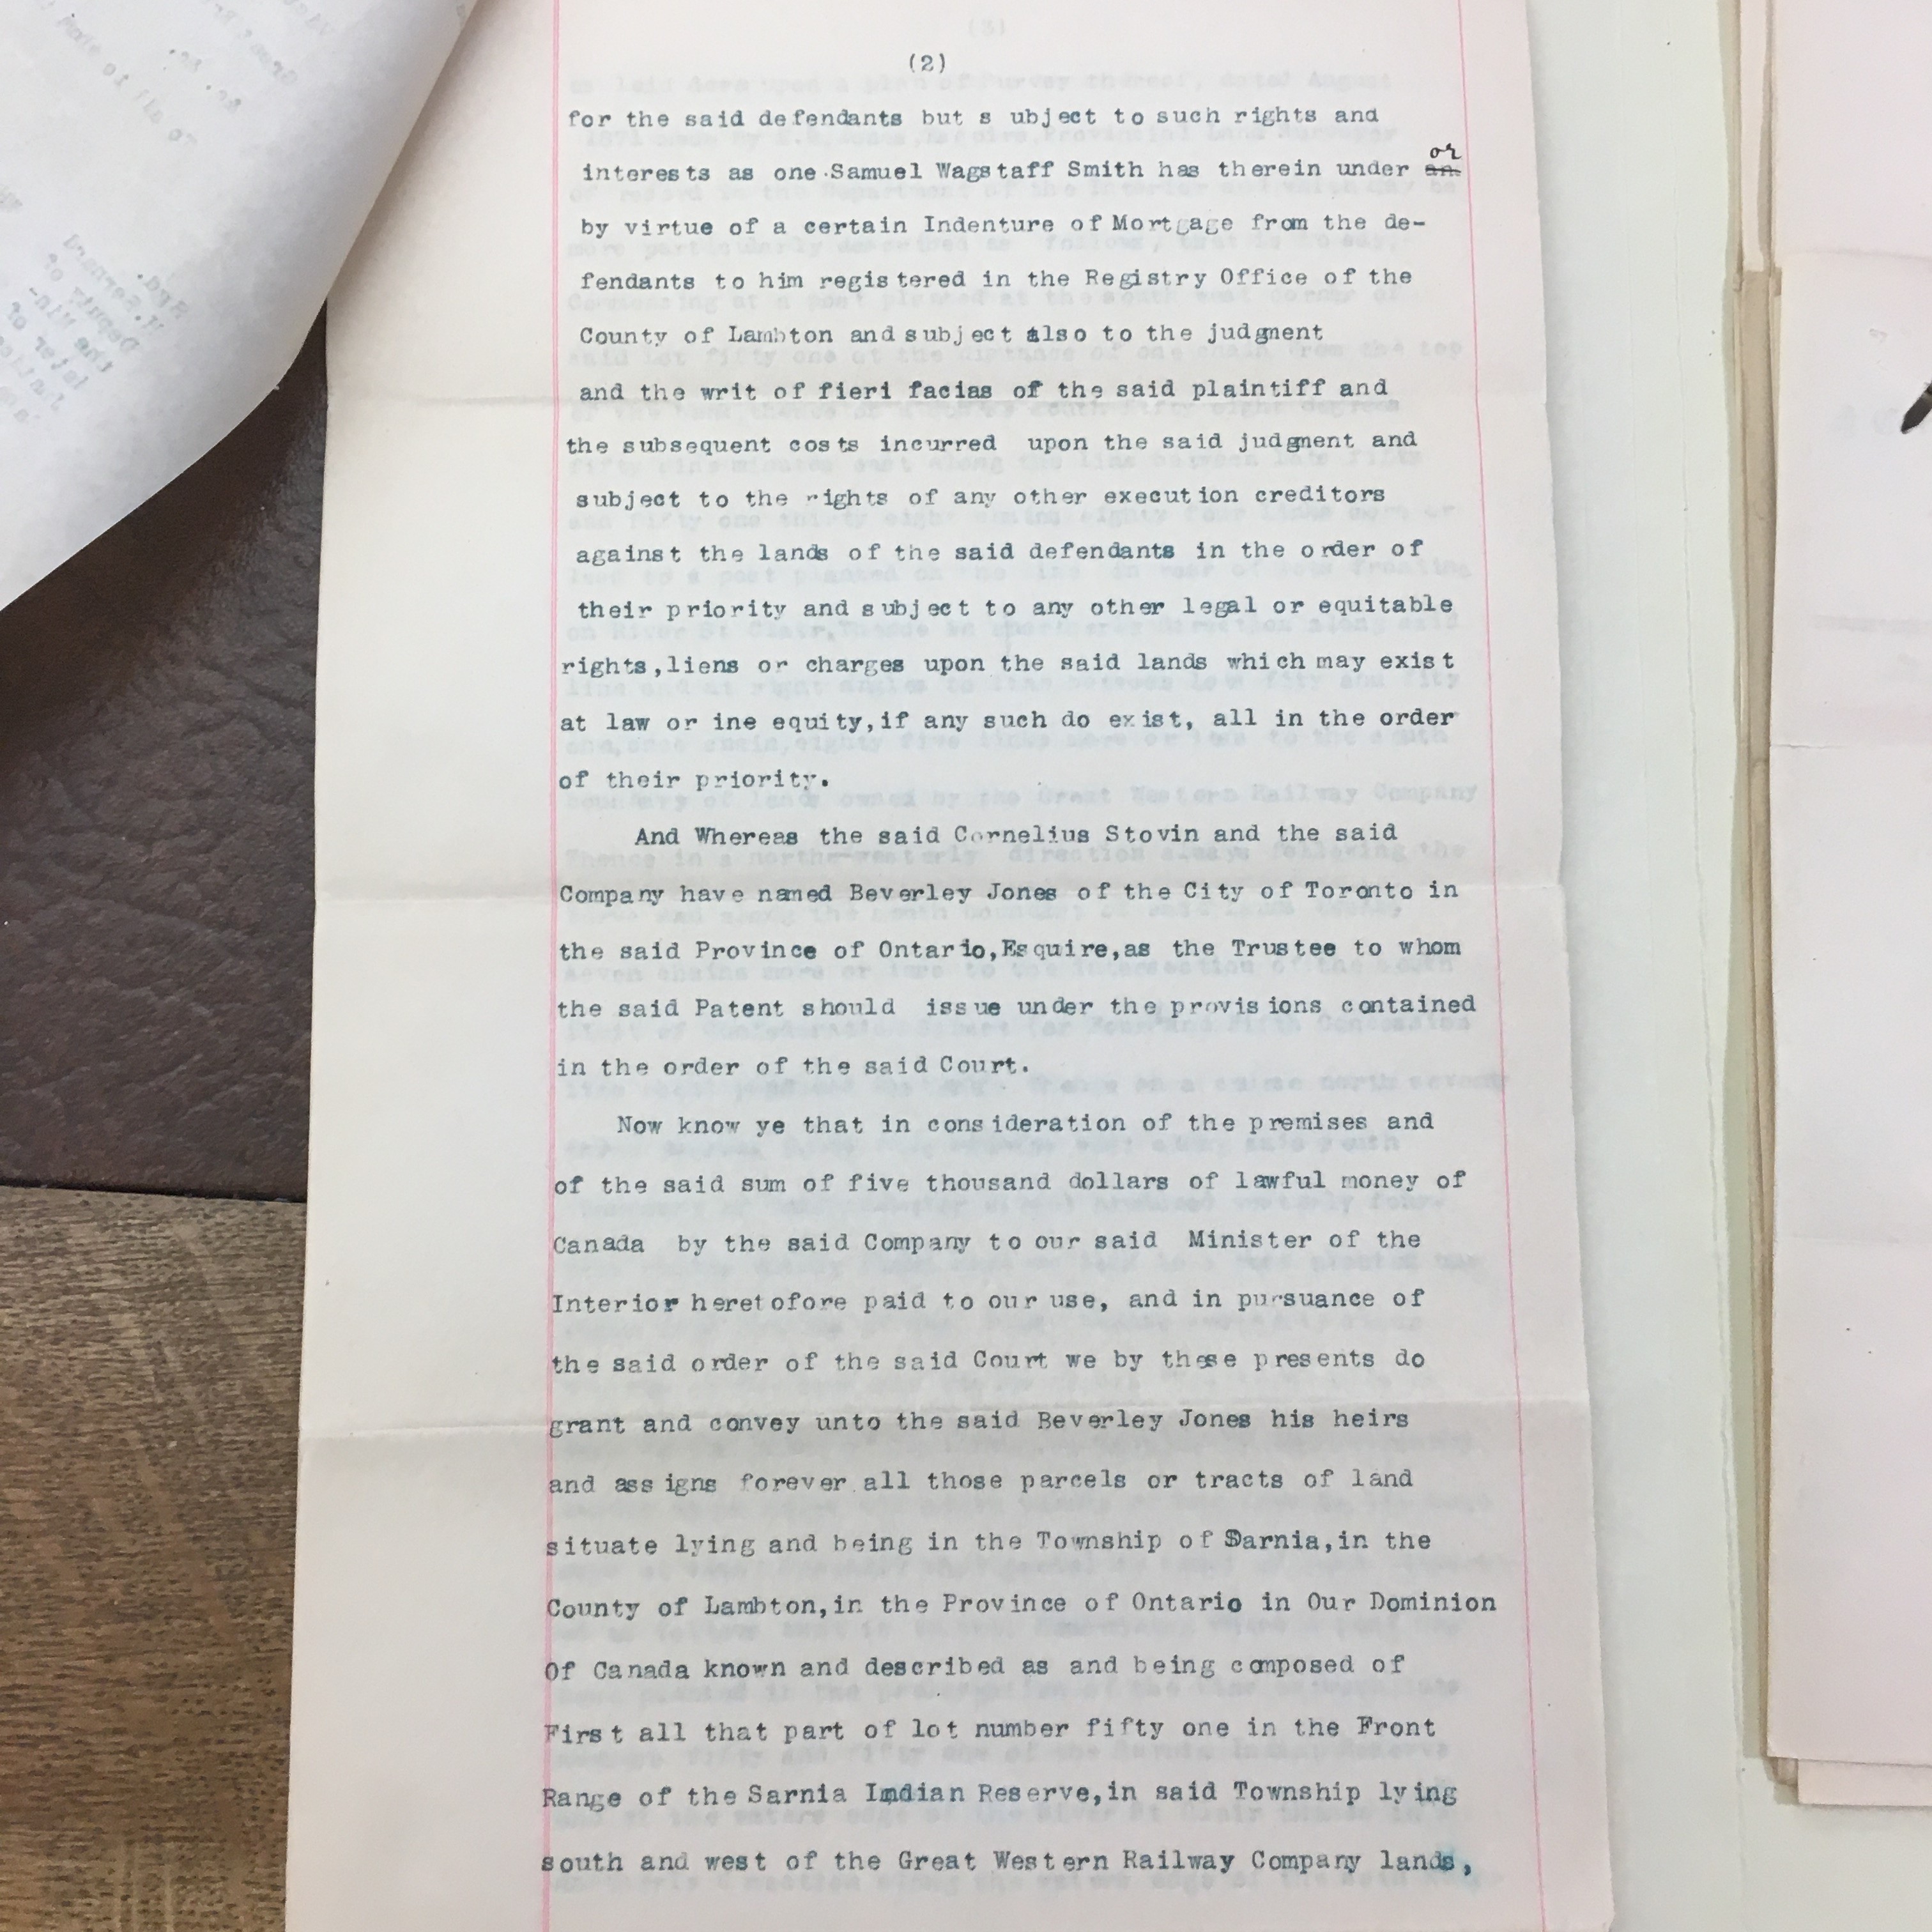 (2)
for the said defendants but s ubject to such rights and
or
interests as one Samuel Wagstaff Smith has therein under an
by virtue of a certain Indenture of Mortgage from the de-
fendants to him registered in the Registry Office of the
County of Lambton and subject also to the judgment
and the writ of fieri facias of the said plaintiff and
the subsequent costs incurred upon the said judgment and
subject to the rights of any other execution creditors
against the lands of the said defendants in the order of
their priority and subject to any other legal or equitable
rights,liens or charges upon the said lands which may exist
at law or ine equity,if any such do exist, all in the order
of their priority.
And Whereas the said Cornelius Stovin and the said
Company have named Beverley Jones of the City of Toronto in
the said Province of Ontario,Esquire,as the Trustee to whom
the said Patent should issue under the provisions contained
in the order of the said Court.
Now know ye that in consideration of the premises and
of the said sum of five thousand dollars of lawful money of
Canada by the said Company to our said Minister of the
Interior heretofore paid to our use, and in pursuance of
the said order of the said Court we by these presents do
grant and convey unto the said Beverley Jones his heirs
and assigns forever all those parcels or tracts of land
situate lying and being in the Township of Sarnia,in the
County of Lambton,in the Province of Ontario in Our Dominion
Of Canada known and described as and being composed of
First all that part of lot number fifty one in the Front
Range of the Sarnia Indian Reserve,in said Township lying
south and west of the Great Western Railway Company lands,